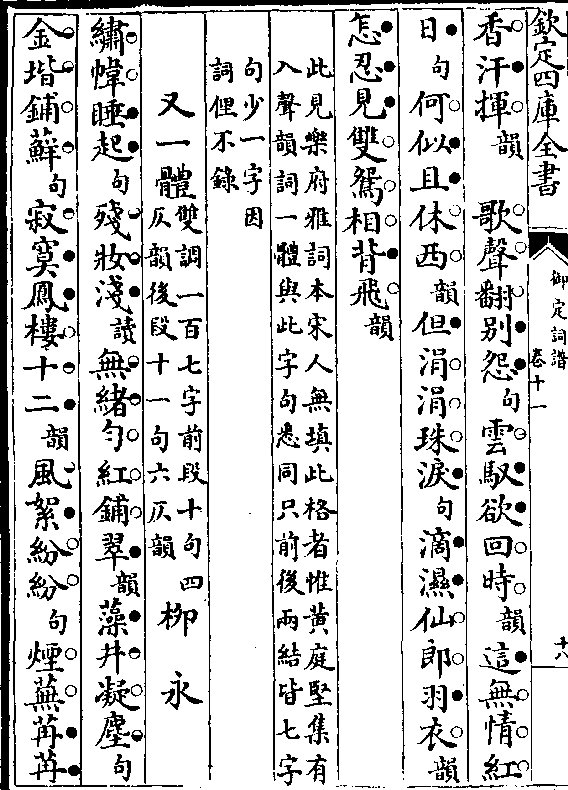 欽定四庫全書
御定詞譜
卷十一
十六
香汗揮韻 歌聲翻別怨句雲馭欲回時韻這無情紅
日句何似且休西韻但涓涓珠淚句滴濕仙郎羽衣韻
怎忍見雙鴛相背飛韻
此見樂府雅詞本宋人無填此格者惟黄庭堅集有
入聲韻詞一體與此字句悉同只前後兩結皆七字
句少一字因
詞俚不錄
又一體雙調一百七字前段十句四
仄韻後段十一句六仄韻 柳永
繡幃睡起句殘妝淺讀無緒勻紅鋪翠韻藻井凝塵句
金堦鋪蘚句寂寞鳳樓十二韻風絮紛紛句煙蕪苒苒